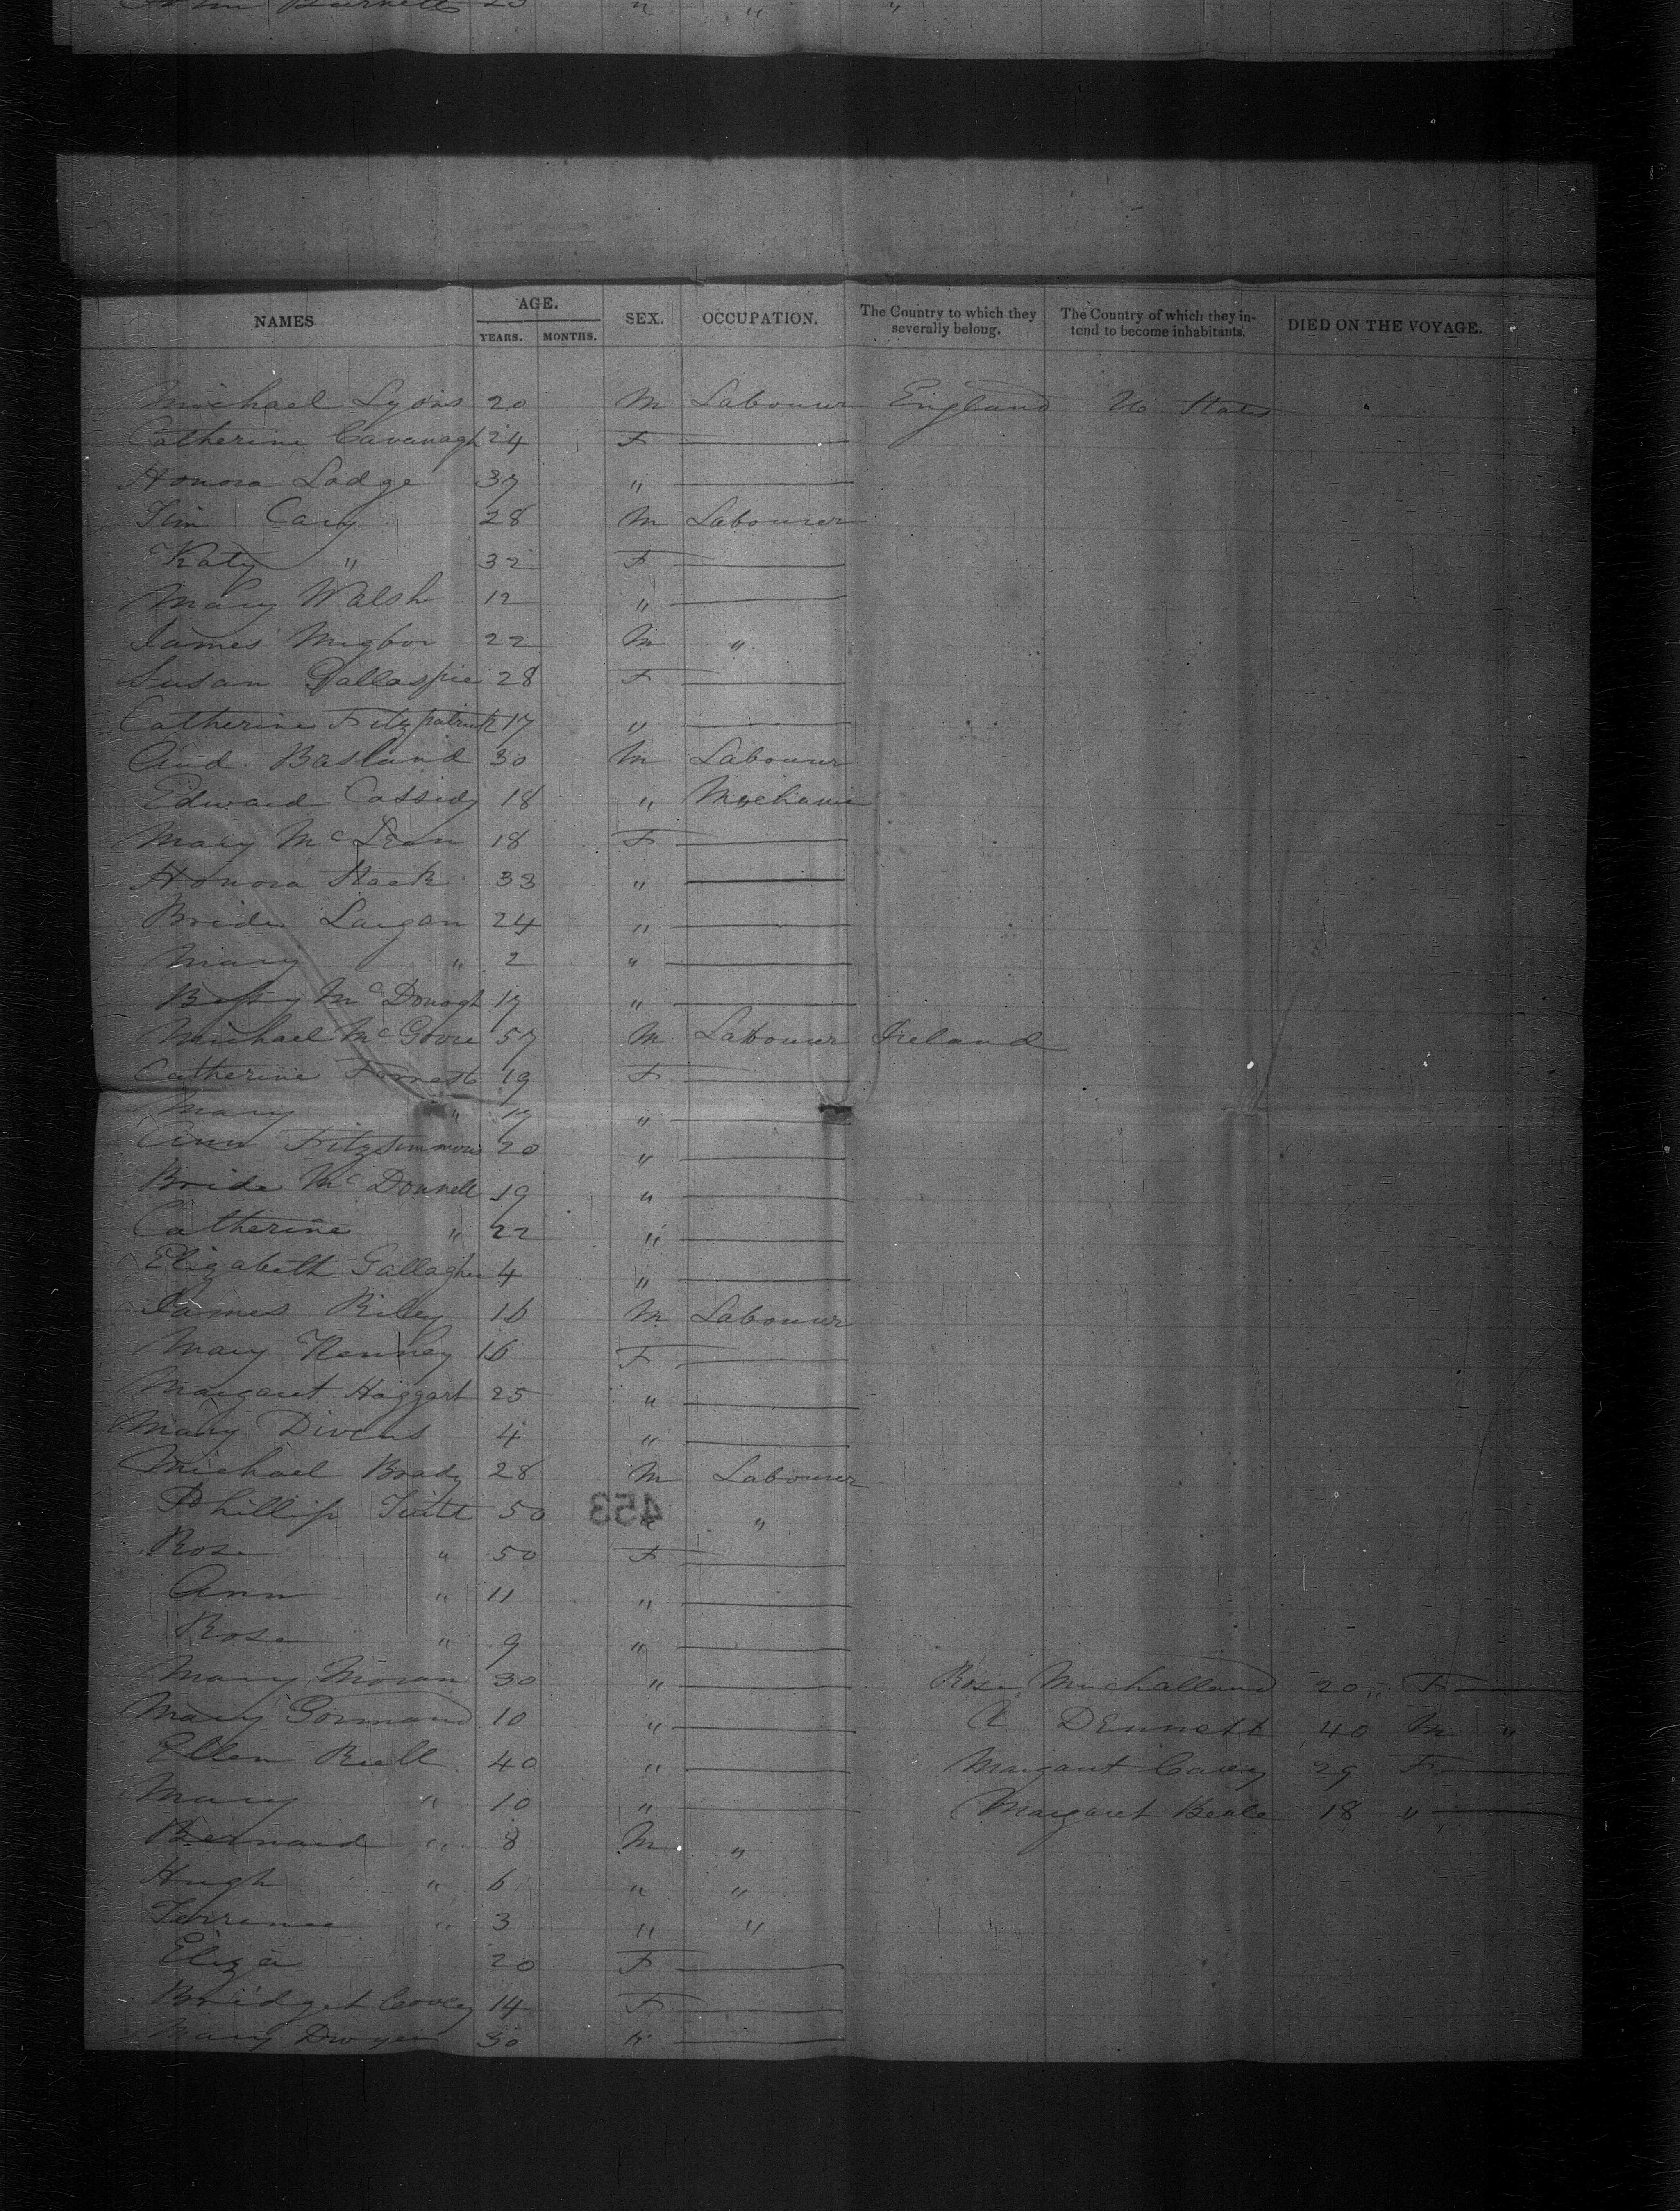 John Burnett 23 " " "
NAMES AGE. YEARS. MONTHS. SEX. OCCUPATION. The Country to which they severally belong. The Country of which they intend to become inhabitants. DIED ON THE VOYAGE.
Michael Lyons 20 M Labourer England U States
Catherine Cavanagh 24 F
Honora Lodge 37 "
Tim Cary 28 M Labourer
Katy " 32 F
Mary Walsh 12 "
James 22 M "
Susan Gallaspie 28 F
Catherine Fitzpatrick 17 "
And. Basland 30 M Labourer
Edward Cassidy 18 " Mechanic
Mary McLean 18 F
Honora Stack 33 "
Bride Largan 24 "
Mary " 2 "
Bessy McDonogh 17 "
Michael McGovre 57 M Labourer Ireland
Catherine Forrest 19 F
Mary " 17 "
Ann Fitzsimmons 20 "
Bride McDonnell 19 "
Catherine " 22 "
Elizabeth Gallagher 4 "
James Riley 16 M Labourer
Mary Kenney 16 F
Margaret Haggart 25 "
Mary Divens 4 "
Michael Brady 28 M Labourer
Phillip Tuite 50 453 "
Rose " 50 F
Ann " 11 "
Rose " 9 "
Mary Moran 30 " Rose Muchalland 20 " F
Mary Gormand 10 " A Dennett 40 M "
Ellen Riell 40 " Margaret Carey 29 F
Mary " 10 " Margaret Beale 18 "
Bernard " 8 M "
Hugh " 6 " "
Terrence " 3 " "
Eliza 20 F
Bridget Cooley 14 F
Mary Dwyer 30 "